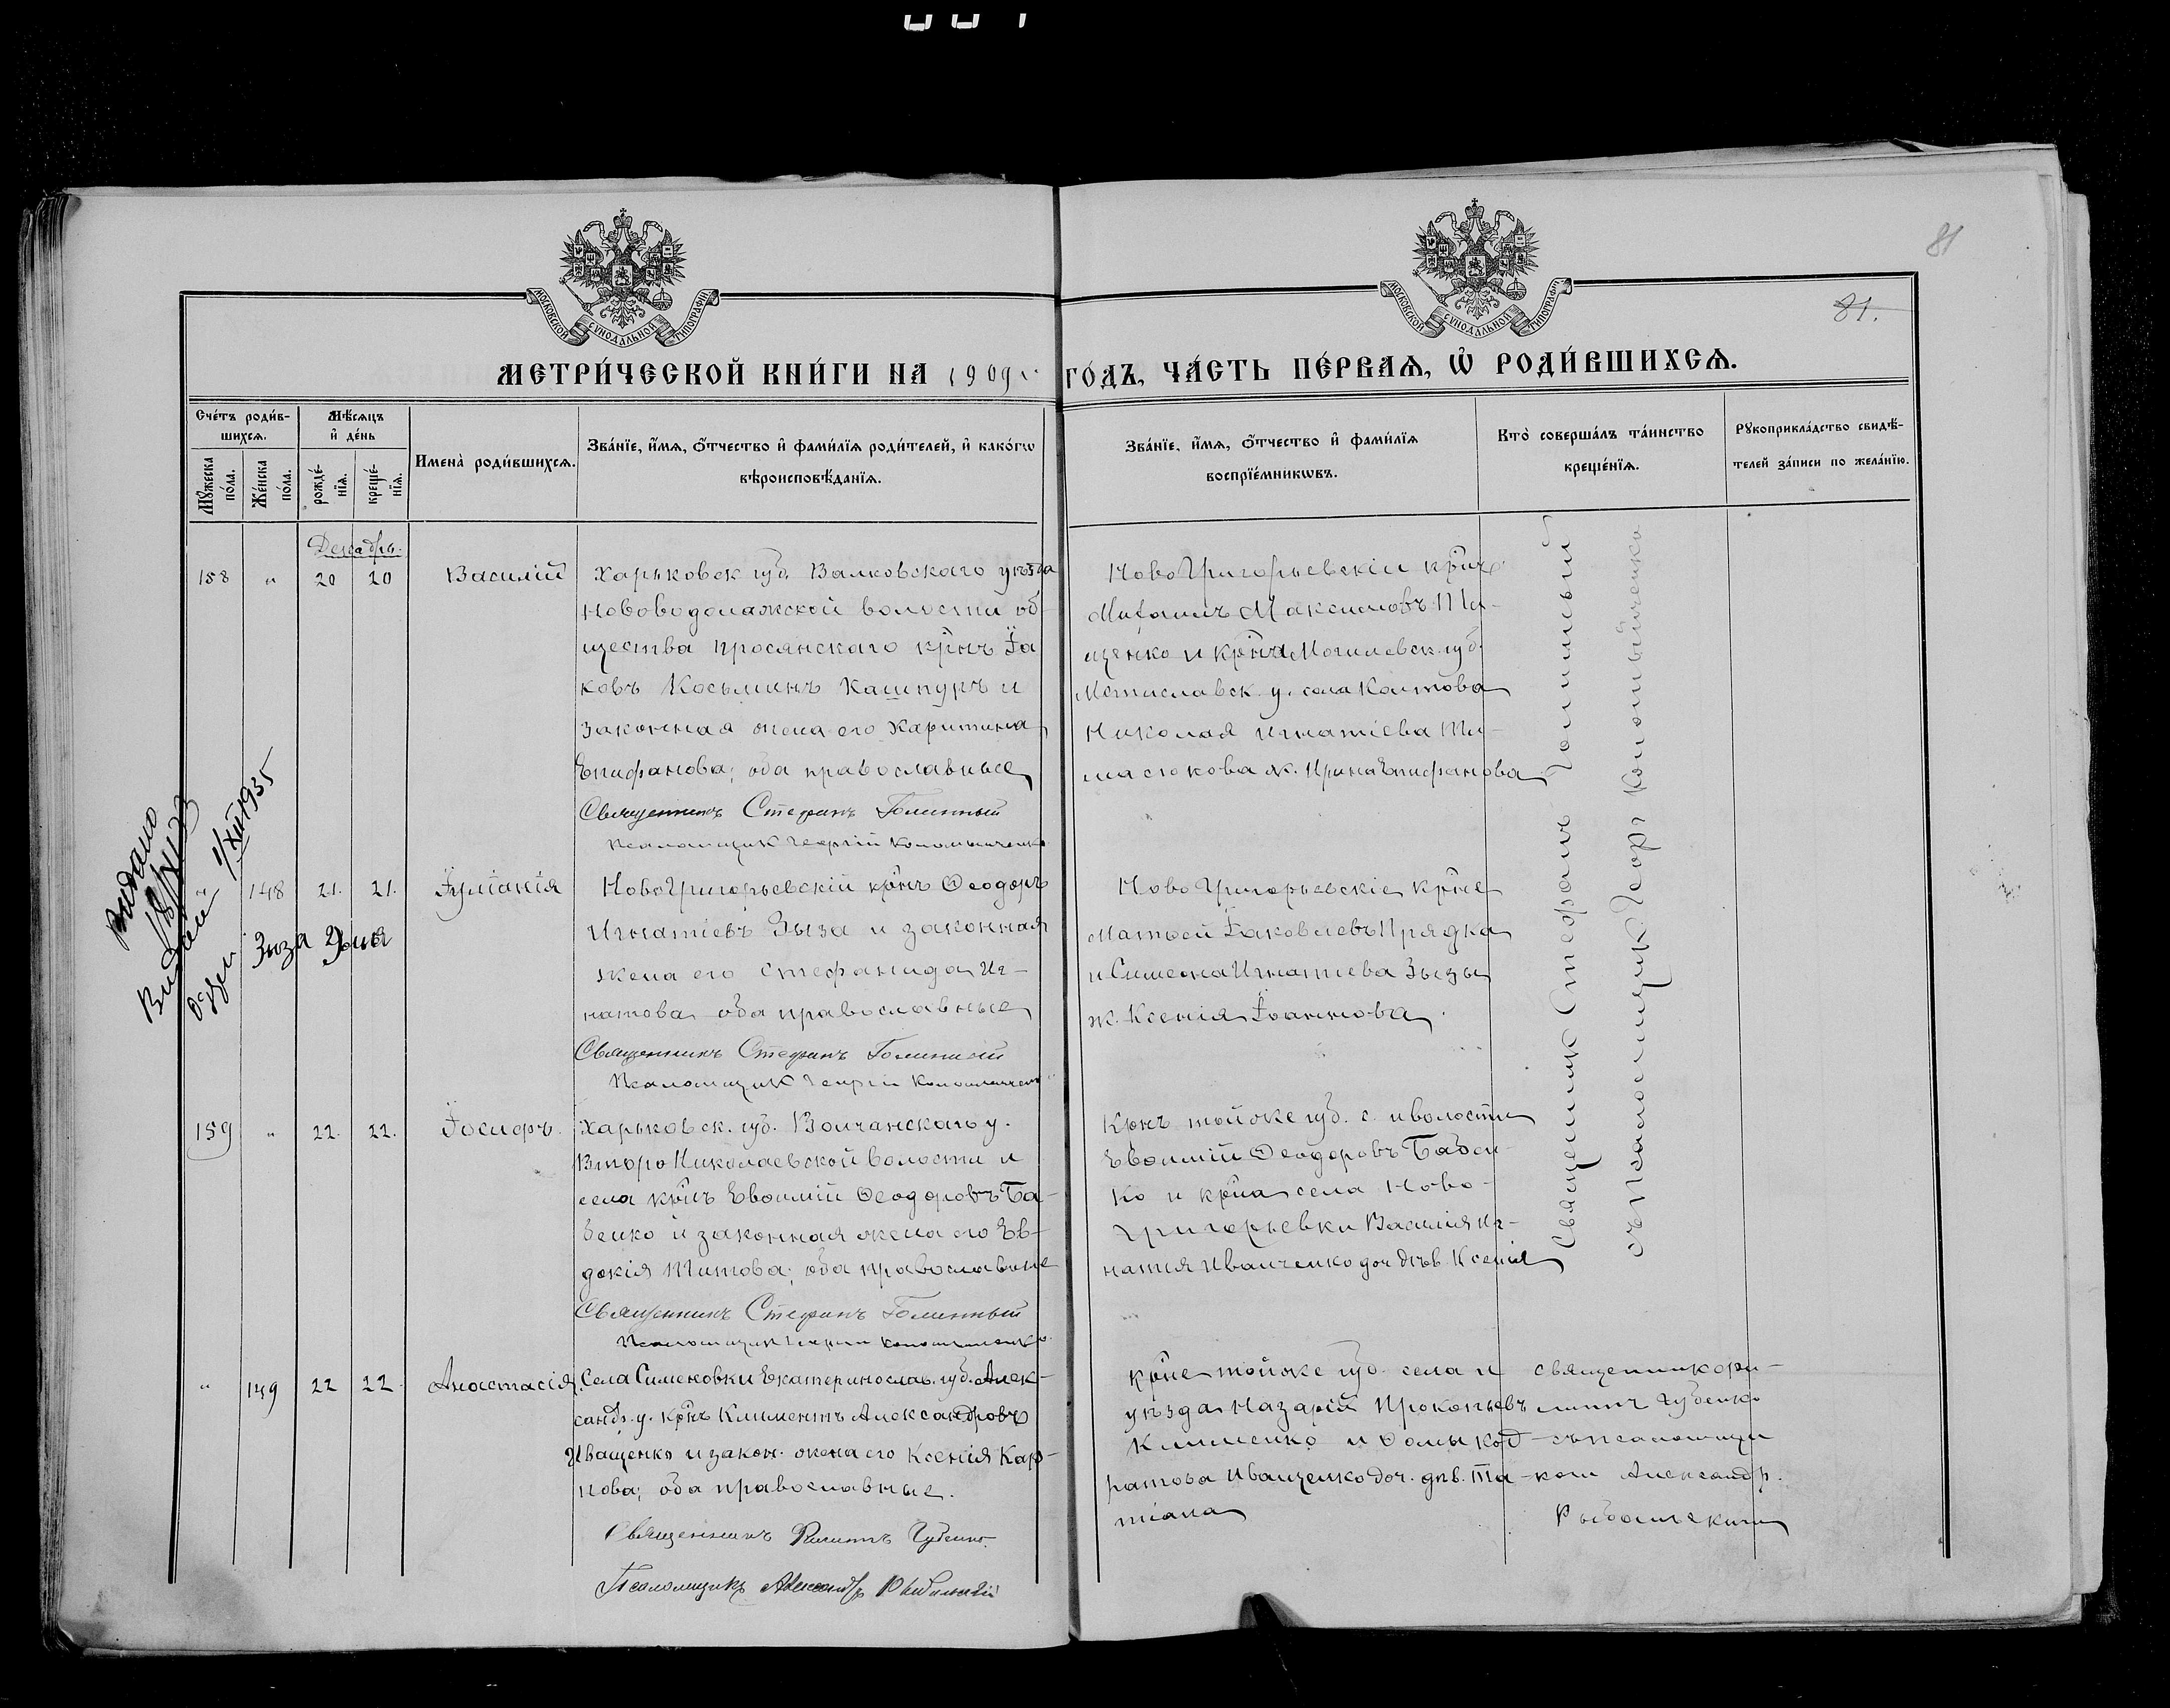 81
81.
МОСКОВСКОЙ СѴНОДАЛЬНОЙ ТИПОГРАФІИ
МОСКОВСКОЙ СѴНОДАЛЬНОЙ ТИПОГРАФІИ
МЕТРИ́ЧЕСКОЙ КНИ́ГИ НА 1909 ГО́ДЪ, ЧА́СТЬ ПЕ́РВАѦ, Ѡ РОДИ́ВШИХСѦ.
Сче́тъ роди́в-
шихсѧ.
Мꙋ́жеска по́ла.
Же́нска по́ла.
Мѣ́сѧцъ
и҆ де́нь
рожде́-
нїѧ.
креще́-
нїѧ.
Имена̀ роди́вшихсѧ.
Зва́нїе, и҆́мѧ, ѻ҆́тчество и҆ фами́лїѧ роди́телей, и҆ како́гѡ
вѣроисповѣ́данїѧ.
Зва́нїе, и҆́мѧ, ѻ҆́тчество и҆ фами́лїѧ
воспрїе́мникѡвъ.
Кто̀ соверша́лъ та́инство
креще́нїѧ.
Рꙋкоприкла́дство свидѣ́-
телей за́писи по жела́нїю.
Декабрь.
158 " 20 20 Василій
Харьковск. губ. Валковскаго уѣзда
Нововодолажской волости об-
щества просянскаго крнъ Іа
ковъ Косьминъ Кашпуръ и
законная жена его Харитина
Епифанова; оба православные
Священникъ Стефанъ Голинный
Псаломщикъ Георгій
НовоГригорьевскій крнъ
Михаилъ Максимовъ Ти-
щенко и крна Могилевск. губ.
Мстиславск. у. села Колтова
Николая Игнатіева Ти-
масюкова ж. Ирина Епифанова
Священник Стефанъ
съ Псаломщик. Георг.
Видано
1/XII 1935
Зиза Улия
" 148 21. 21. Іуліанія
НовоГригорьевскій крнъ Ѳеодоръ
Игнатіевъ Зыза и законная
жена его Стефанида Иг-
натова оба православные
Священникъ Стефанъ Голинный
Псаломщик Георгій
НовоГригорьевскіе крне
Матѳей Іаковлевъ Прядка
и Симеона Игнатіева Зызы
ж. Ксенія Іоаннова.
159 " 22. 22. Іосифъ.
Харьковск. губ. Волчанскаго у.
ВтороНиколаевской волости и
села крнъ Евѳимій Ѳеодоровъ Ба-
бенко и законная жена его Ев-
докія Титова; оба православные
Священникъ Стефанъ Голинный
Псаломщик Георгій
Крнъ тойже губ. с. и волости
Евѳимій Ѳеодоровъ Бабен-
ко и крна села Ново-
григорьевки Василія Иг-
натія Иванченко доч. дѣв. Ксенія
" 149 22 22. Анастасія.
Села Сименовки Екатеринослав. губ. Алек-
санд. у. крнъ Климентъ Александровъ
Иващенко и закон. жена его Ксенія Кар-
пова; оба православные.
Священникъ Филиппъ Губенко.
Псаломщикъ Александръ
крне тойже губ. села и
уѣзда Назарій Прокопьевъ
Клименко и Домы Код-
ратова Иващенко доч. дѣв. Та-
тіана
священник Фи-
липпъ Губенко
съ псаломщи
ком Александр.